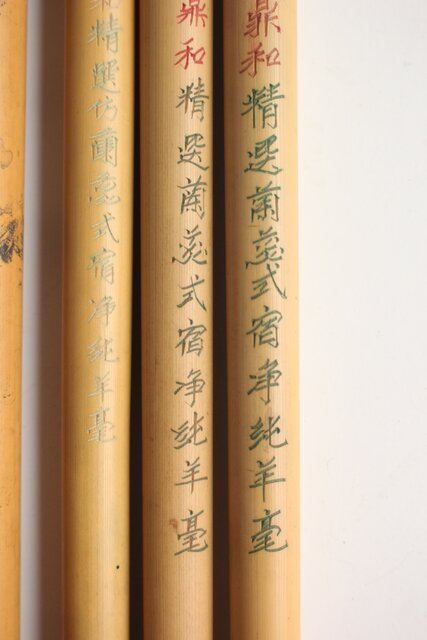 鼎和精選蘭蕊式宿净純羊毫
鼎和精選蘭蕊式宿净純羊毫
和精選仿蘭蕊式宿净純羊毫